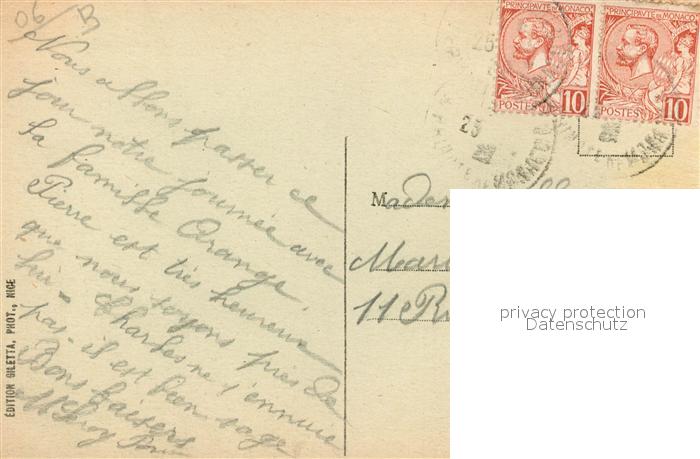 Nous allons passer ce
jour notre journée avec
la famille Orange.
Pierre est très heureux
que nous soyons près de
lui - Charles ne s'ennuie
pas - il est bien sage
Bons baisers
PRINCIPAUTÉ DE MONACO
POSTES 10
PRINCIPAUTÉ DE MONACO
POSTES 10
25
23
Made
Mari
11 R
ÉDITION GILETTA, PHOT., NICE
privacy protection
Datenschutz